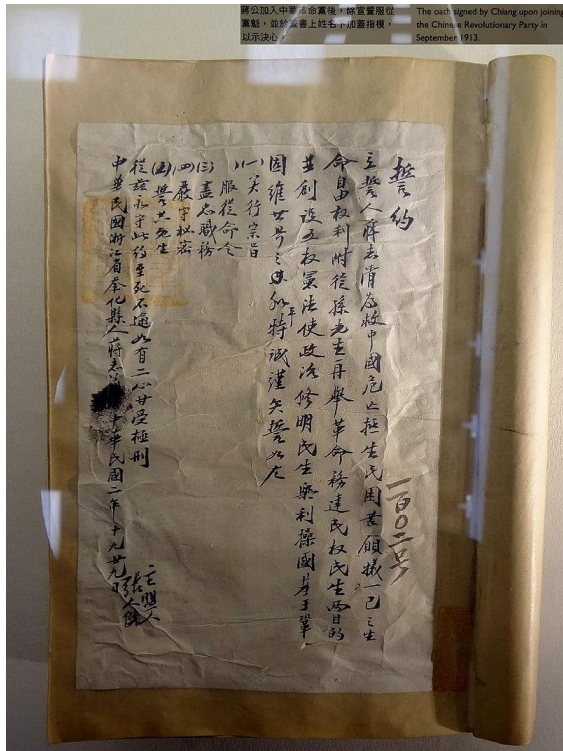 蔣公加入中華革命黨後，除宣誓服從
黨魁，並於誓書上姓名下加蓋指模，
以示決心。
The oath signed by Chiang upon joining
the Chinese Revolutionary Party in
September 1913.
一百〇二号
誓約
立誓人蔣志清為救中國危亡拯生民困苦願犧一己之生
命自由權利附從孫先生再舉革命務達民權民生兩目的
並創設五權憲法使政治修明民生樂利措國基於鞏
固維世界之和平特誠謹矢誓如左
(一)實行宗旨
(二)服從命令
(三)盡忠職務
(四)嚴守秘密
(五)誓共死生
從茲永守此約至死不渝如有二心甘受極刑
中華民國浙江省奉化縣人蔣志清
中華民國二年十月廿九日
主盟人
張人傑